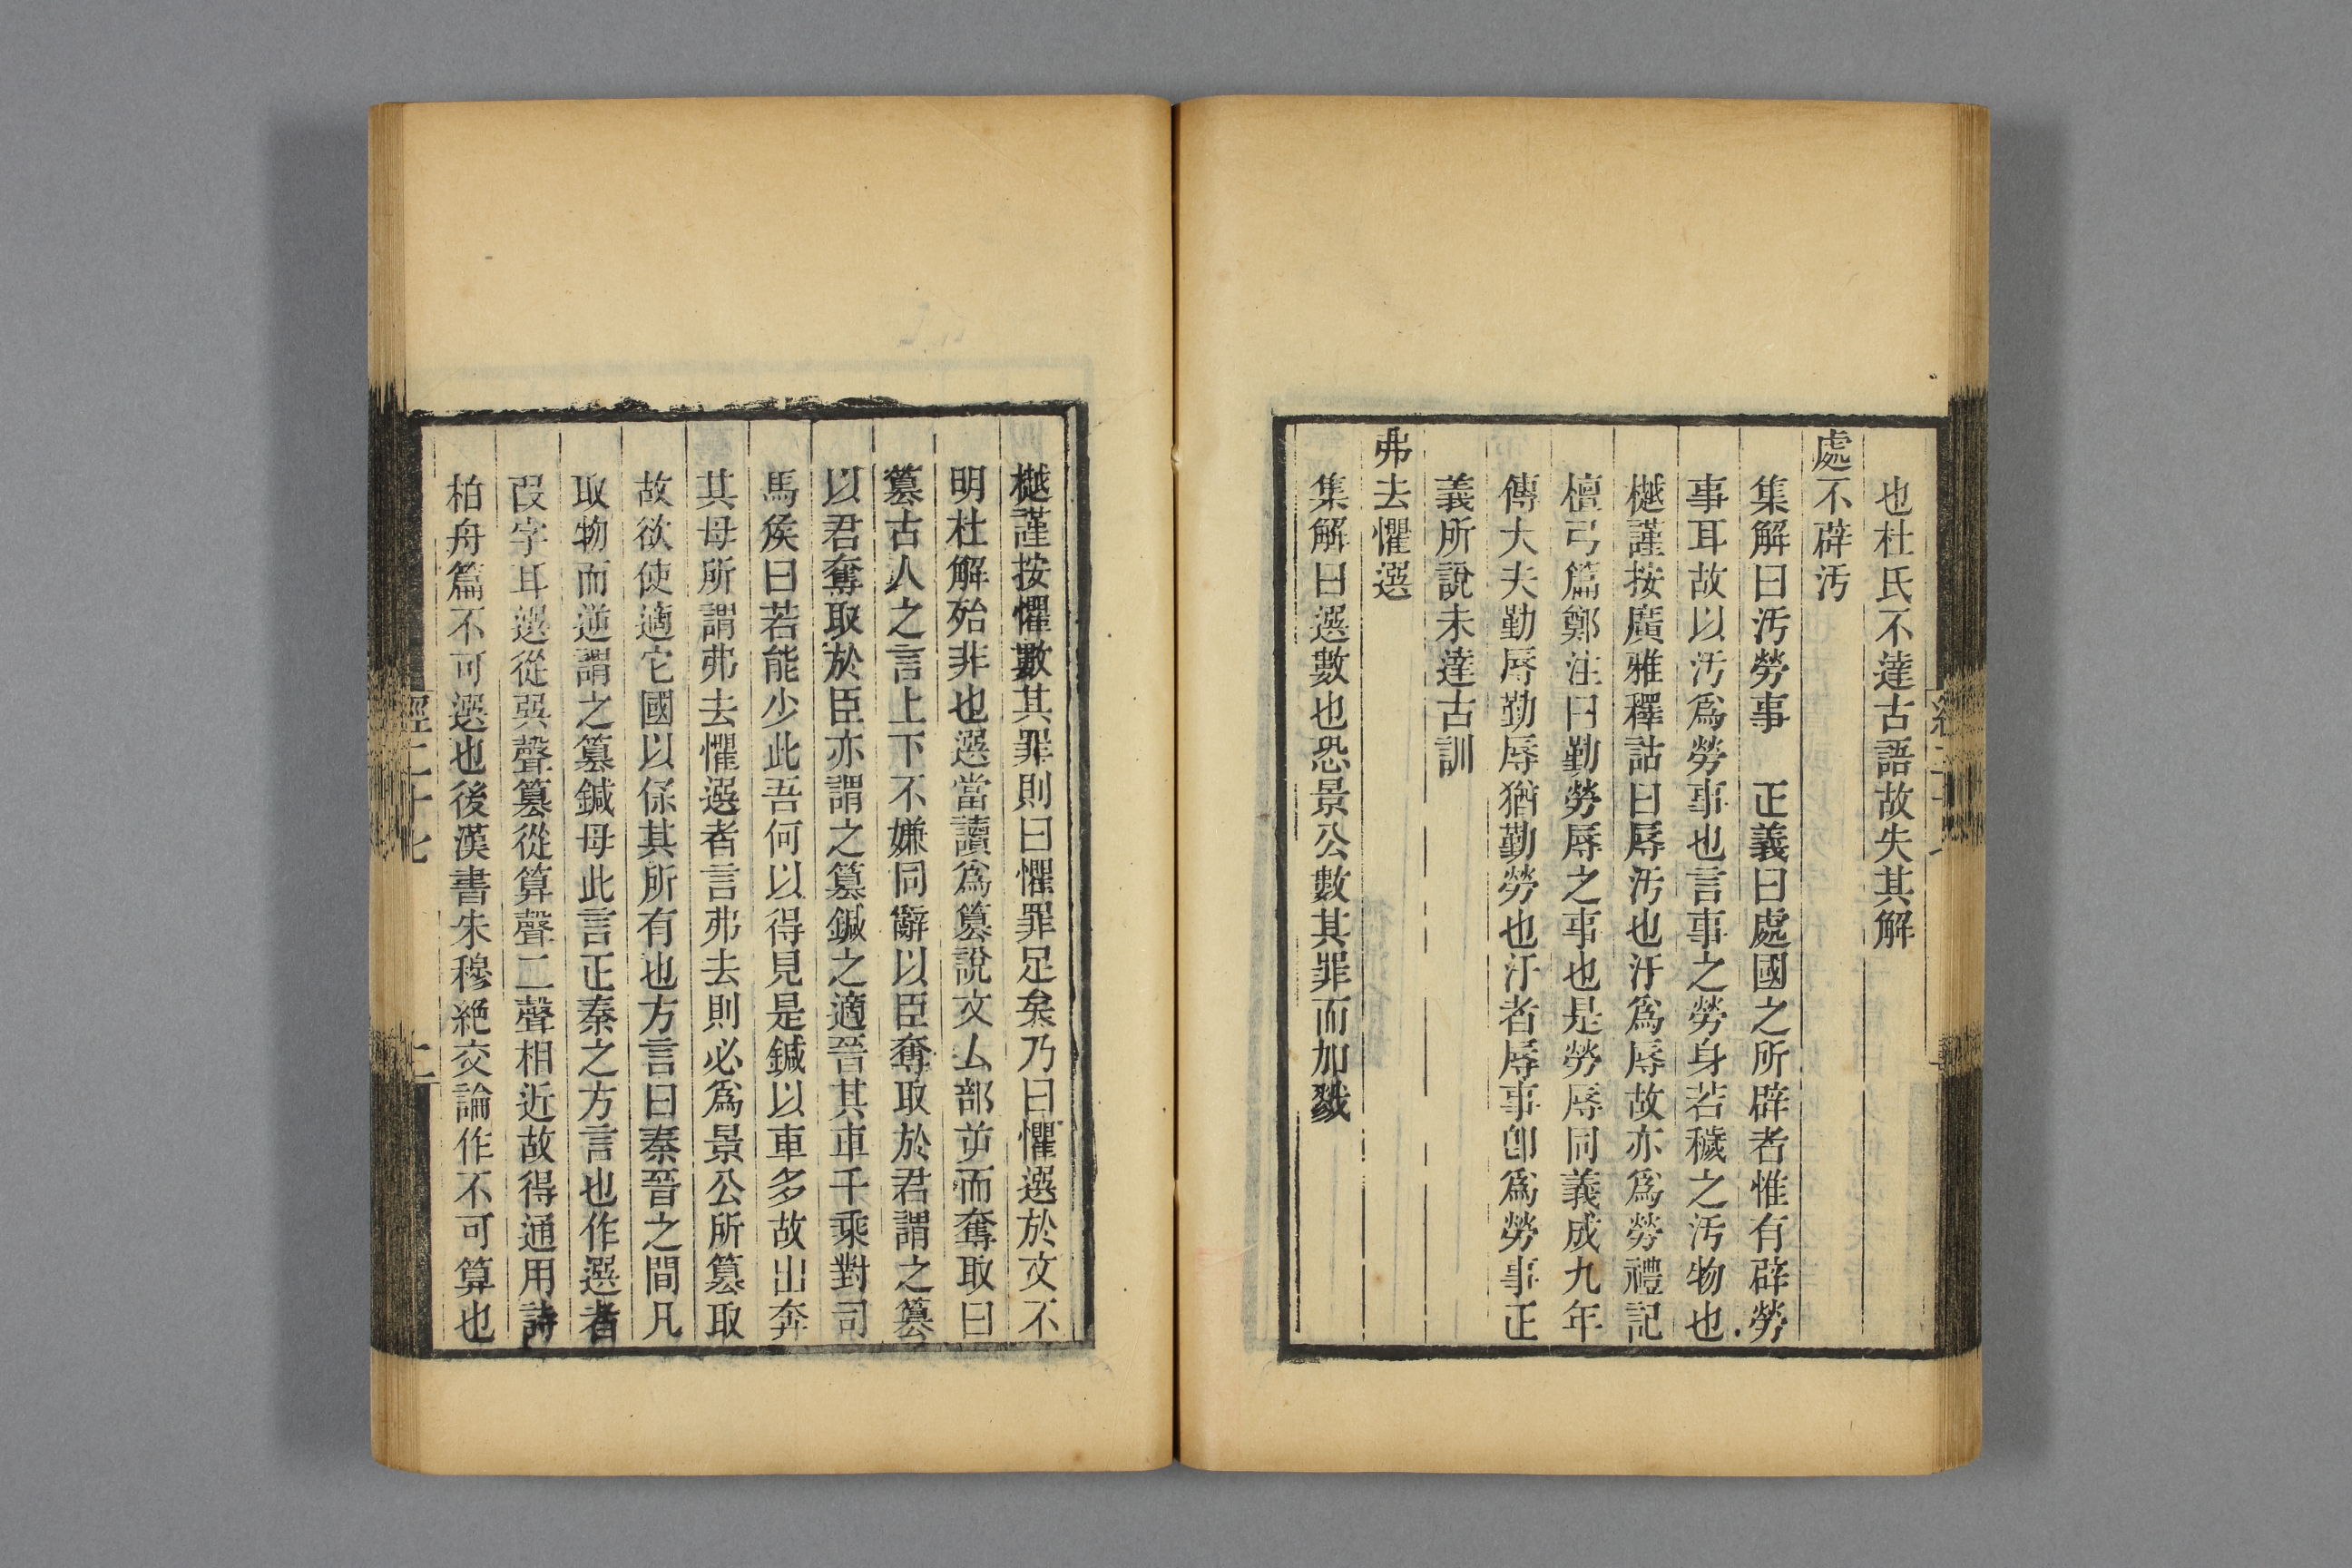 也杜氏不達古語故失其解
處不辟汚
集解曰汚勞事　正義曰處國之所辟者惟有辟勞
事耳故以汚爲勞事也言事之勞身若穢之汚物也
樾謹按廣雅釋詁曰辱汚也汙爲辱故亦爲勞禮記
檀弓篇鄭注曰勤勞辱之事也是勞辱同義成九年
傳大夫勤辱勤辱猶勤勞也汙者辱事卽爲勞事正
義所說未達古訓
弗去懼選
集解曰選數也恐景公數其罪而加戮
樾謹按懼數其罪則曰懼罪足矣乃曰懼選於文不
明杜解殆非也選當讀爲簒說文厶部屰而奪取曰
簒古人之言上下不嫌同辭以臣奪取於君謂之簒
以君奪取於臣亦謂之簒鍼之適晉其車千乘對司
馬矦曰若能少此吾何以得見是鍼以車多故出奔
其母所謂弗去懼選者言弗去則必爲景公所簒取
故欲使適它國以保其所有也方言曰秦晉之間凡
取物而逆謂之簒鍼母此言正秦之方言也作選者
叚字耳選從巽聲簒從算聲二聲相近故得通用詩
柏舟篇不可選也後漢書朱穆絶交論作不可算也
經二十七
二